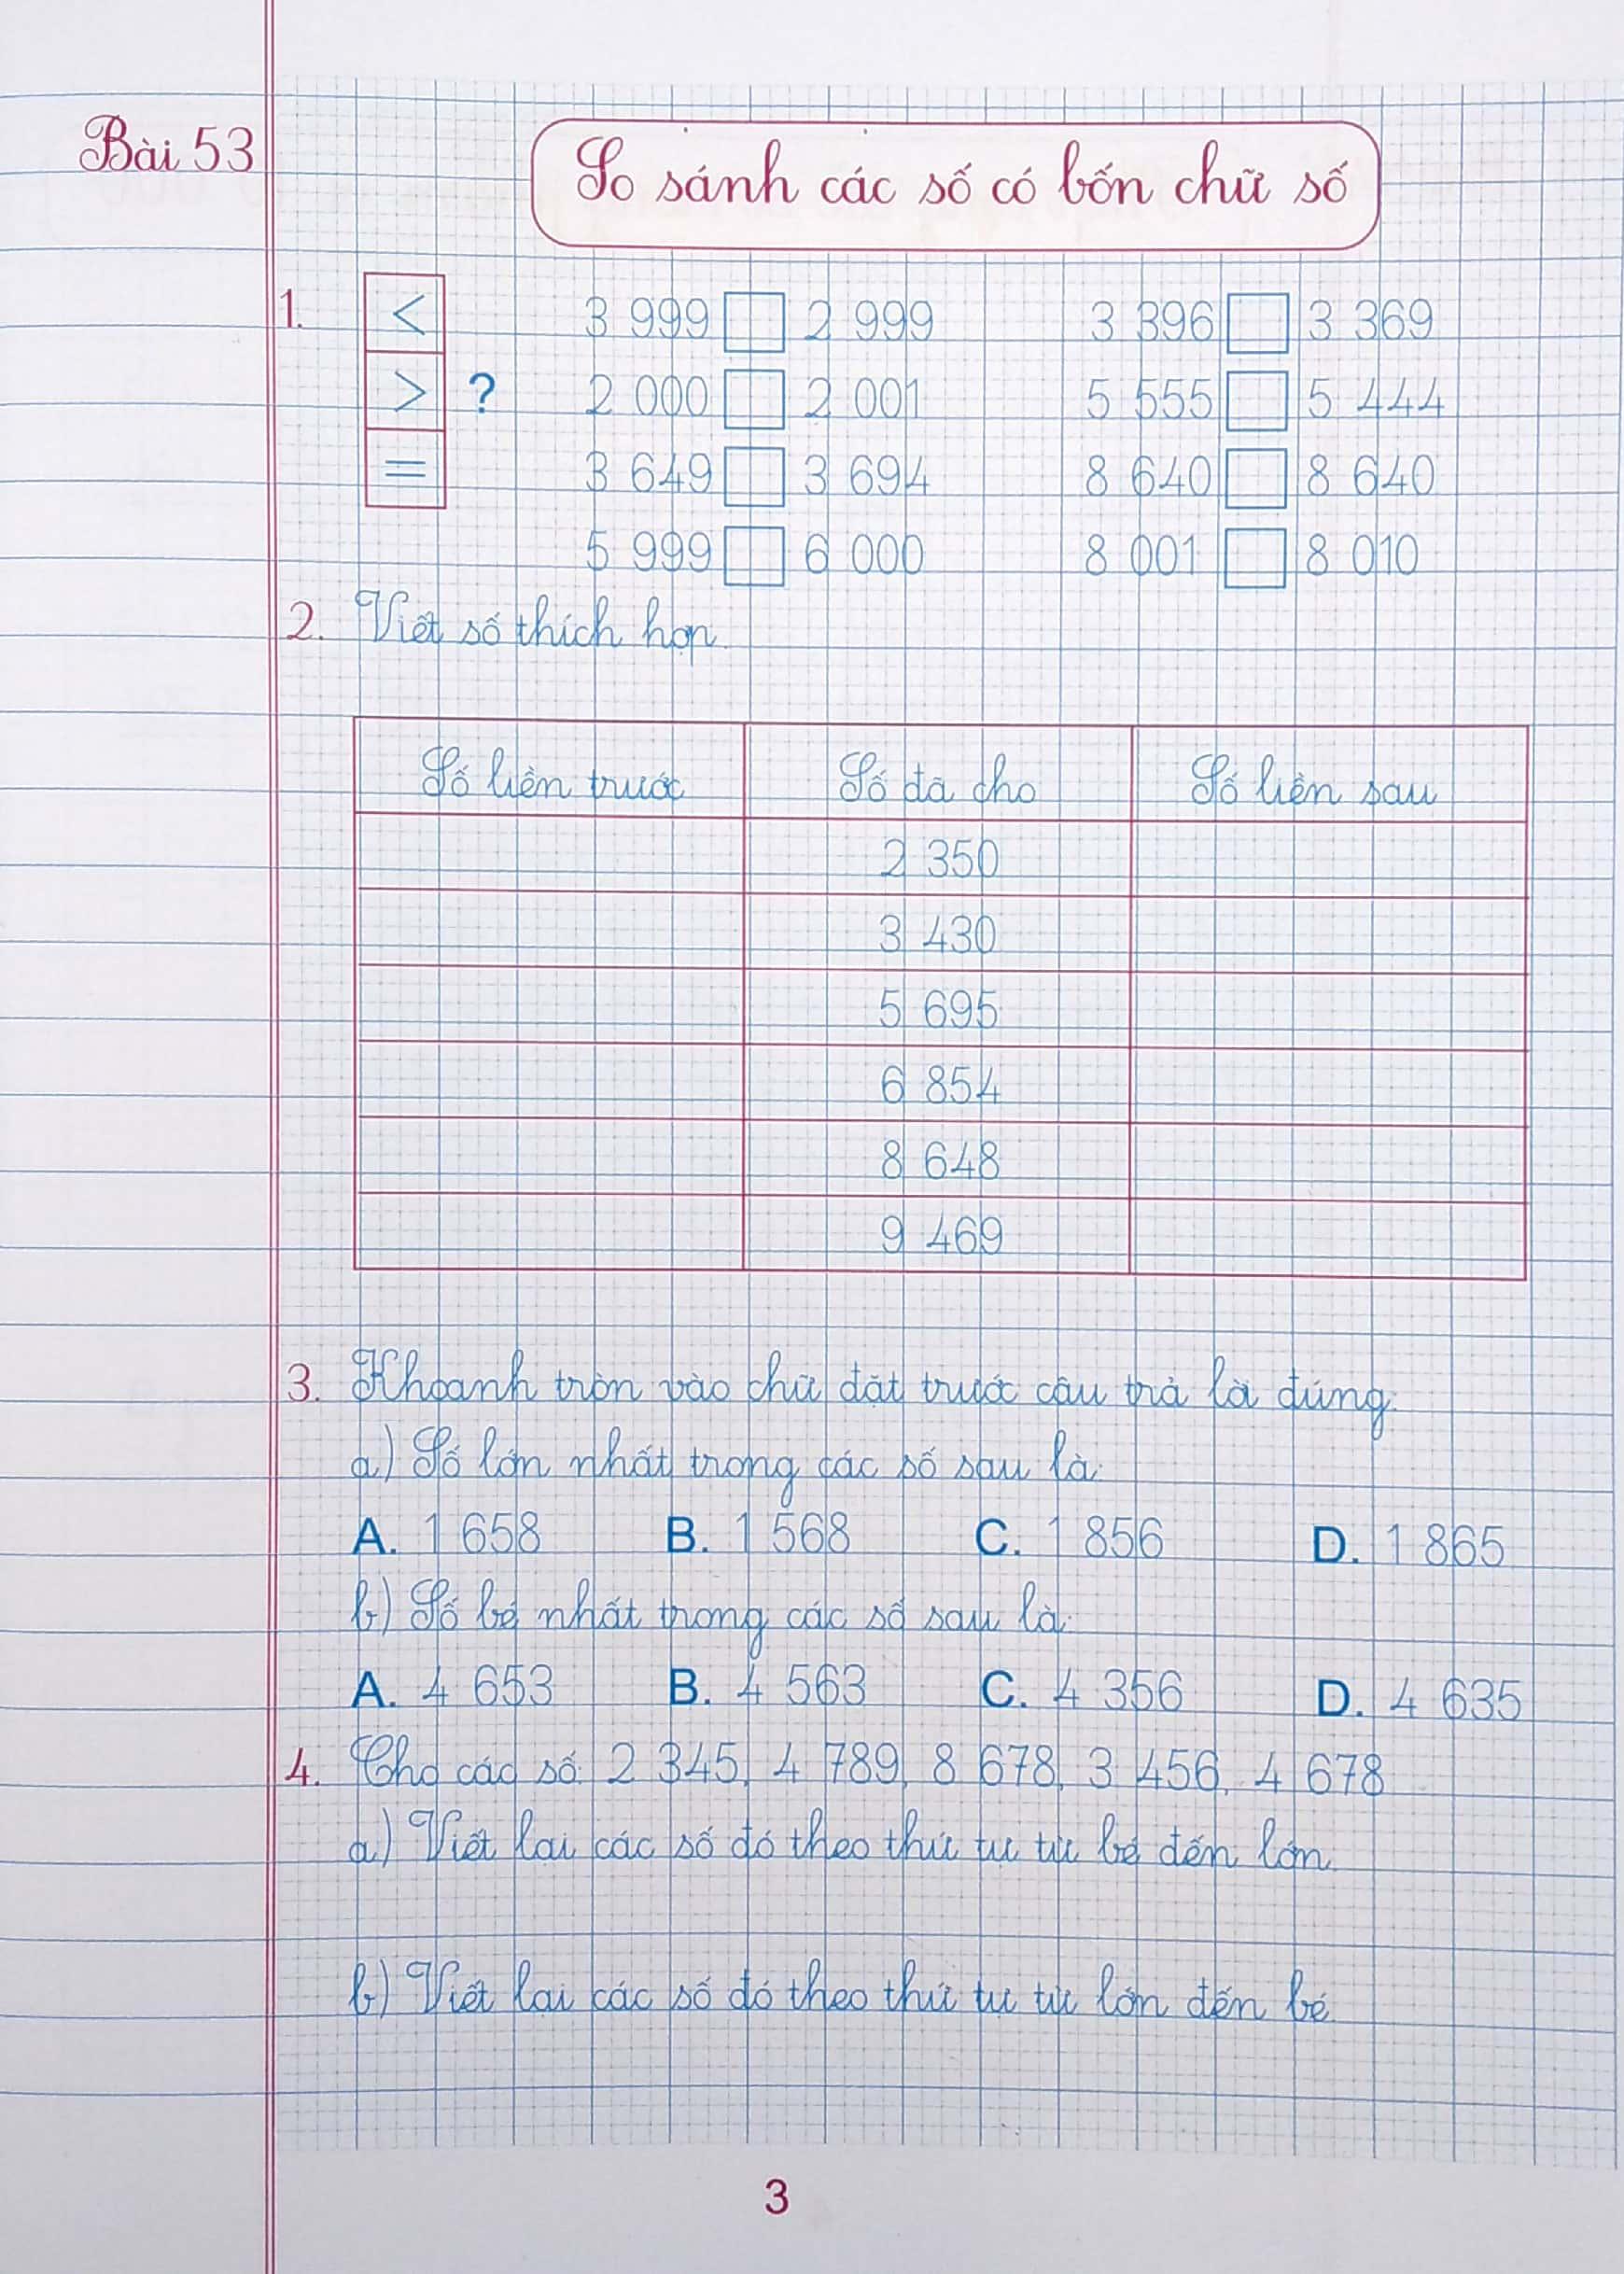 Bài 53
So sánh các số có bốn chữ số
1. < 3 999 2 999 3 396 3 369
> ? 2 000 2 001 5 555 5 444
= 3 649 3 694 8 640 8 640
5 999 6 000 8 001 8 010
2. Viết số thích hợp.
Số liền trước Số đã cho Số liền sau
2 350
3 430
5 695
6 854
8 648
9 469
3. Khoanh tròn vào chữ đặt trước câu trả lời đúng.
a) Số lớn nhất trong các số sau là:
A. 1 658 B. 1 568 C. 1 856 D. 1 865
b) Số bé nhất trong các số sau là:
A. 4 653 B. 4 563 C. 4 356 D. 4 635
4. Cho các số: 2 345, 4 789, 8 678, 3 456, 4 678
a) Viết lại các số đó theo thứ tự từ bé đến lớn.
b) Viết lại các số đó theo thứ tự từ lớn đến bé.
3